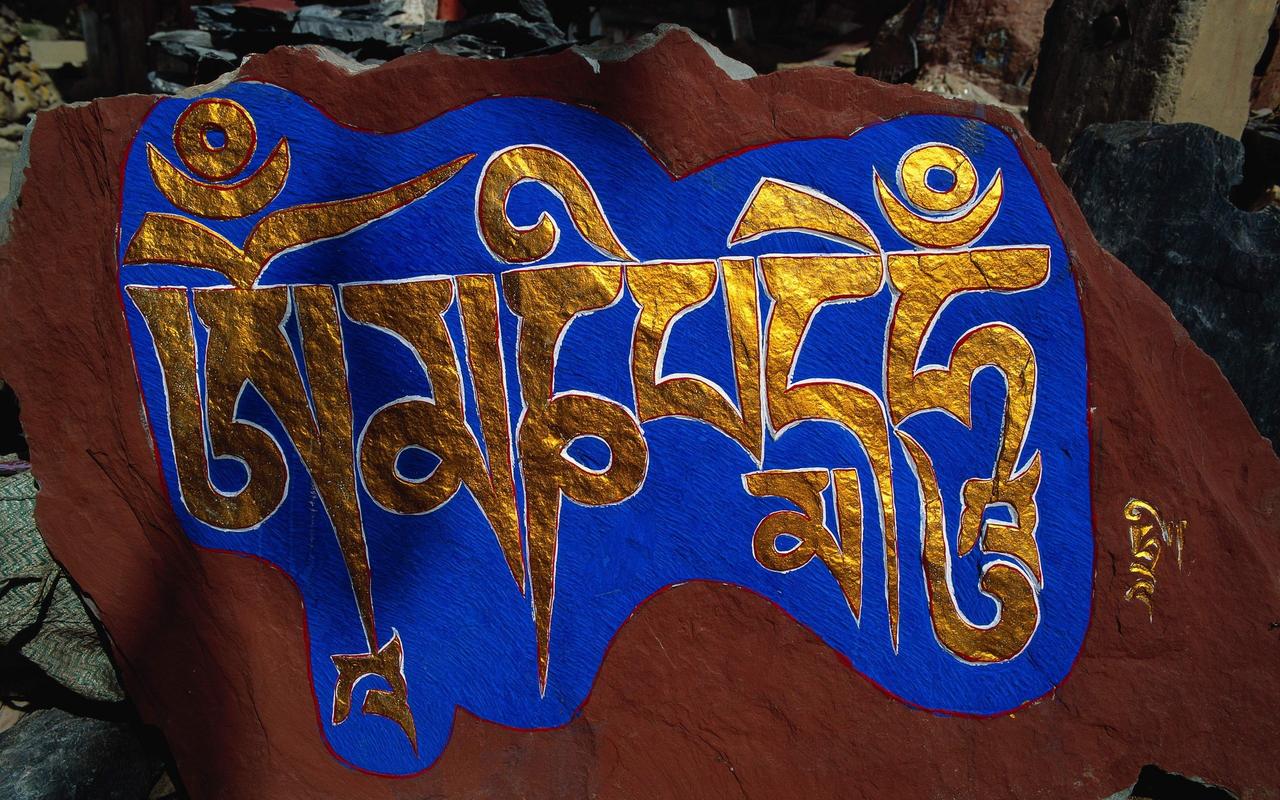 ཨཱོྃམཎིཔདྨེཧཱུྃ